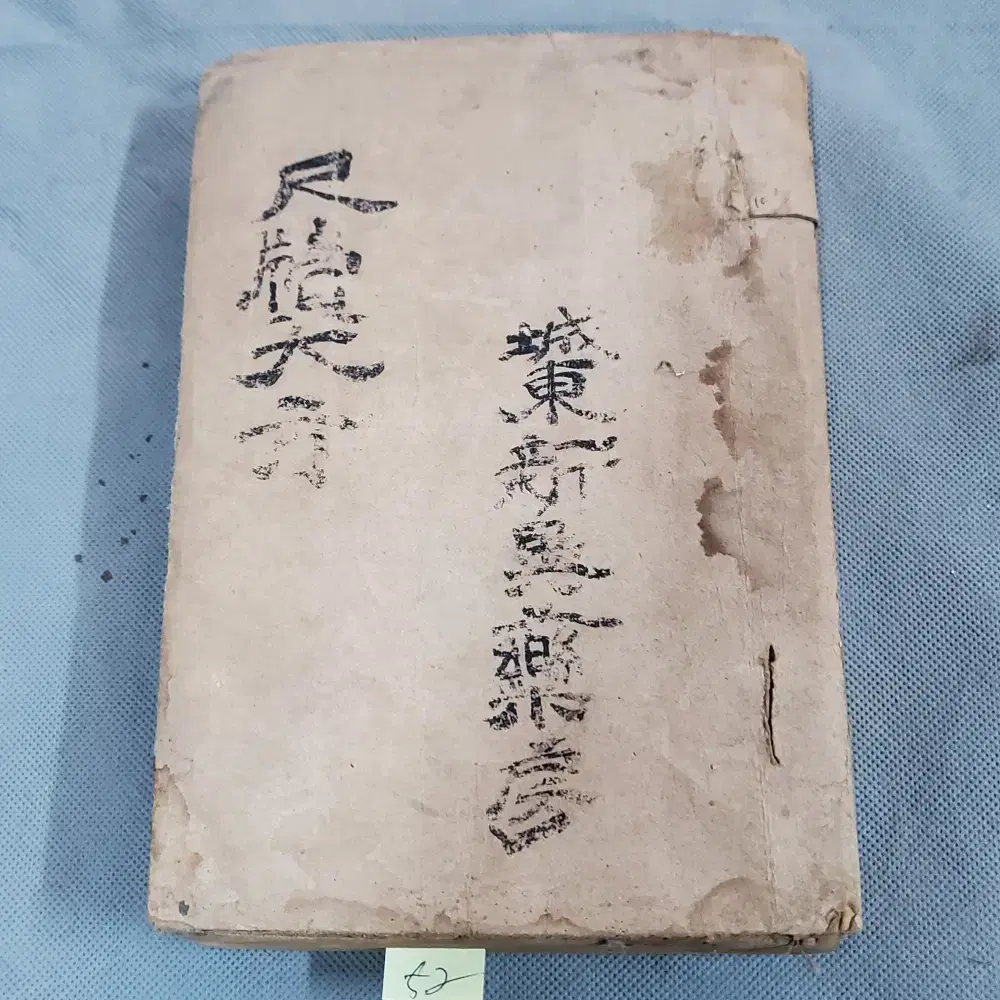 城東新興藥房
尺牘大
52